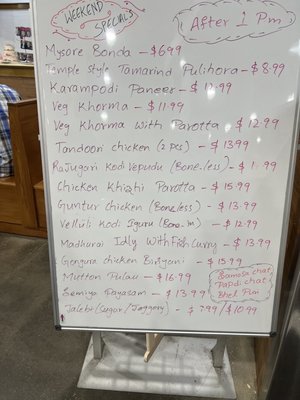 WEEKEND SPECIALS
After 1 Pm
Mysore Bonda - $6.99
Temple Style Tamarind Pulihora - $8.99
Karampodi Paneer - $12.99
Veg Khorma - $11.99
Veg Khorma With Parotta - $12.99
Tandoori chicken (2 pcs) - $13.99
Rajugari Kodi Vepudu (Bone-less) - $
Chicken Khizhi Parotta - $15.99
Guntur chicken (Boneless) - $13.99
Velluli Kodi Iguru (Bone-in) - $12.99
Madhurai Idly With Fish Curry - $13.99
Gongura chicken Biriyani - $15.99
Mutton Pulau - $16.99
Semiya Payasam - $13.99
Jalebi (Sugar/Jaggery) - $7.99/$10.99
Samosa chat
Papdi chat
Bhel Puri